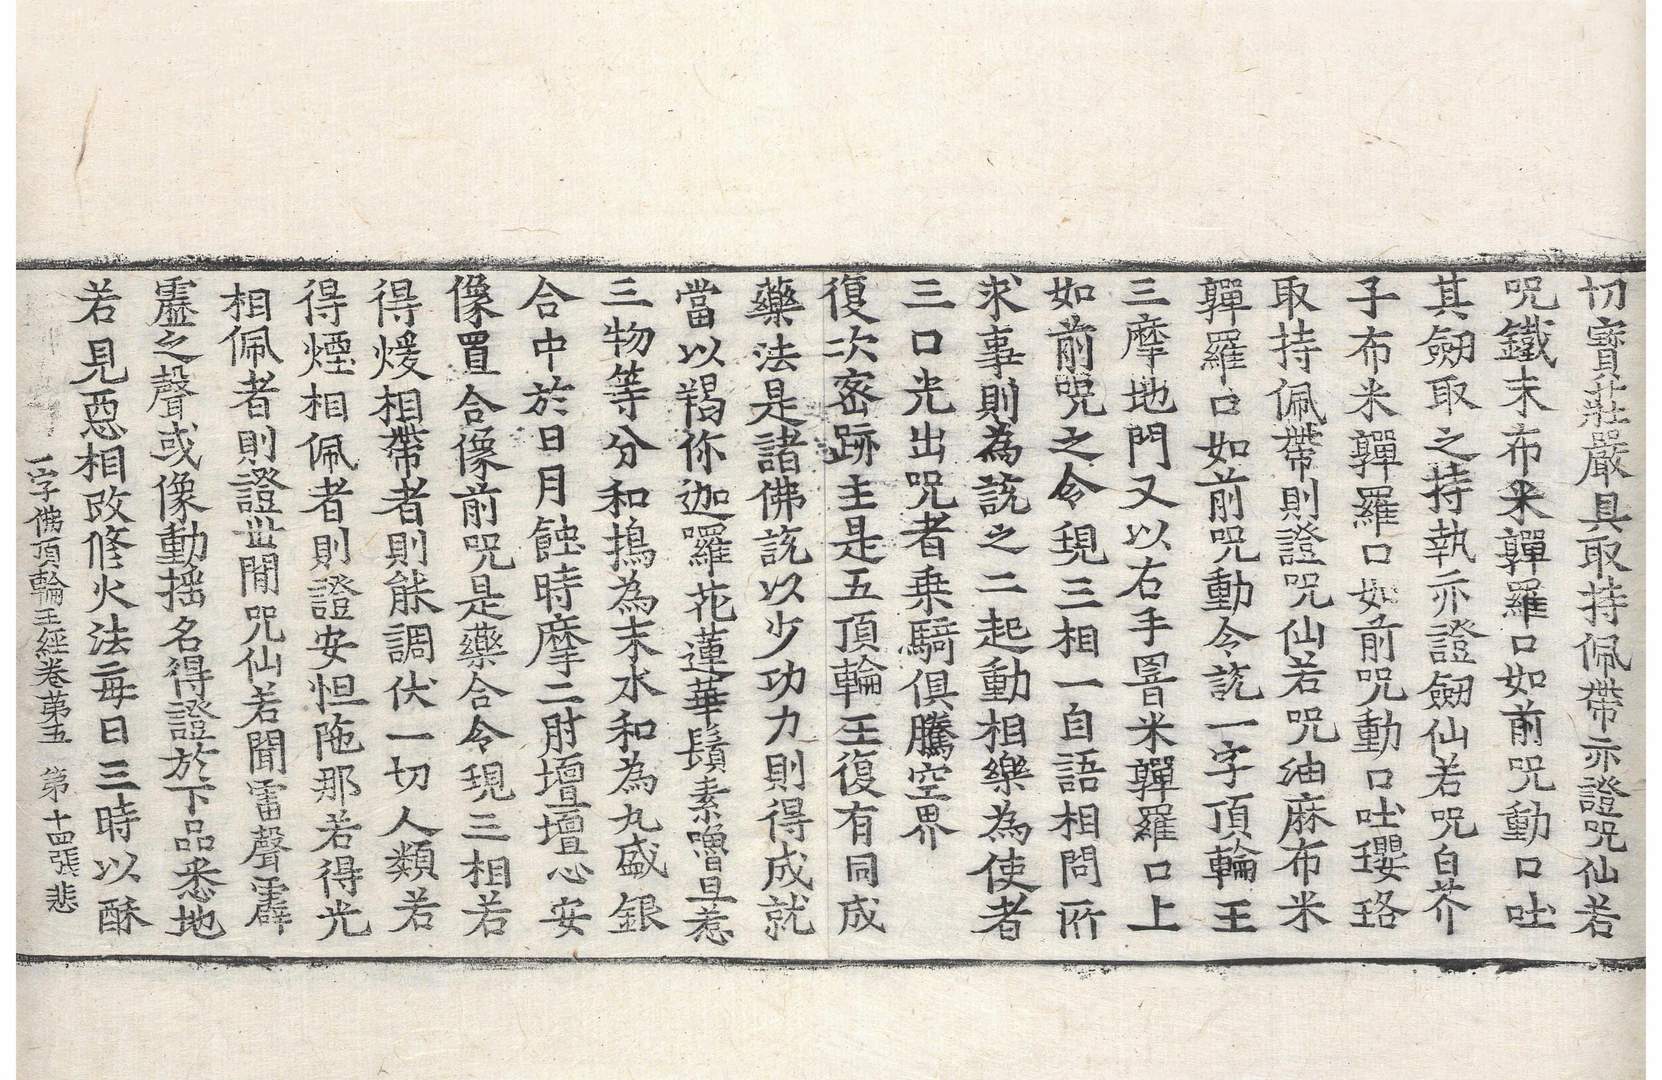 切寶莊嚴具取持佩帶亦證咒仙若
咒鐵末布米鄲羅口如前咒動口吐
其劔取之持執亦證劔仙若咒白芥
子布米鄲羅口如前咒動口吐瓔珞
取持佩帶則證咒仙若咒油麻布米
鄲羅口如前咒動令說一字頂輪王
三摩地門又以右手罯米鄲羅口上
如前咒之令現三相一自語相問所
求事則為說之二起動相樂為使者
三口光出咒者乘騎俱騰空界
復次密跡主是五頂輪王復有同成
藥法是諸佛說以少功力則得成就
當以羯你迦囉花蓮華鬚素嚕旦惹
三物等分和擣為末水和為丸盛銀
合中於日月蝕時摩二肘壇壇心安
像置合像前咒是藥合令現三相若
得煖相帶者則能調伏一切人類若
得煙相佩者則證安怛陁那若得光
相佩者則證世閒咒仙若聞雷聲霹
靂之聲或像動摇名得證於下品悉地
若見惡相改修火法每日三時以酥
一字佛頂輪王經卷第五 第十四張 悲